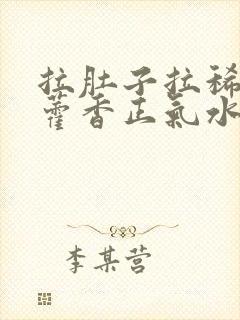 拉肚子拉稀
藿香正氣水
李某营